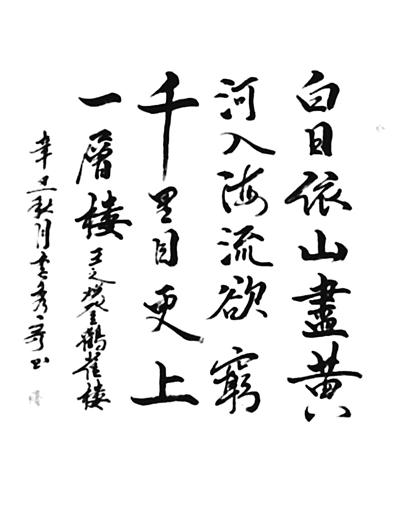 白日依山盡黄
河入海流欲窮
千里目更上
一層楼 王之渙登鹳雀楼
辛丑秋月